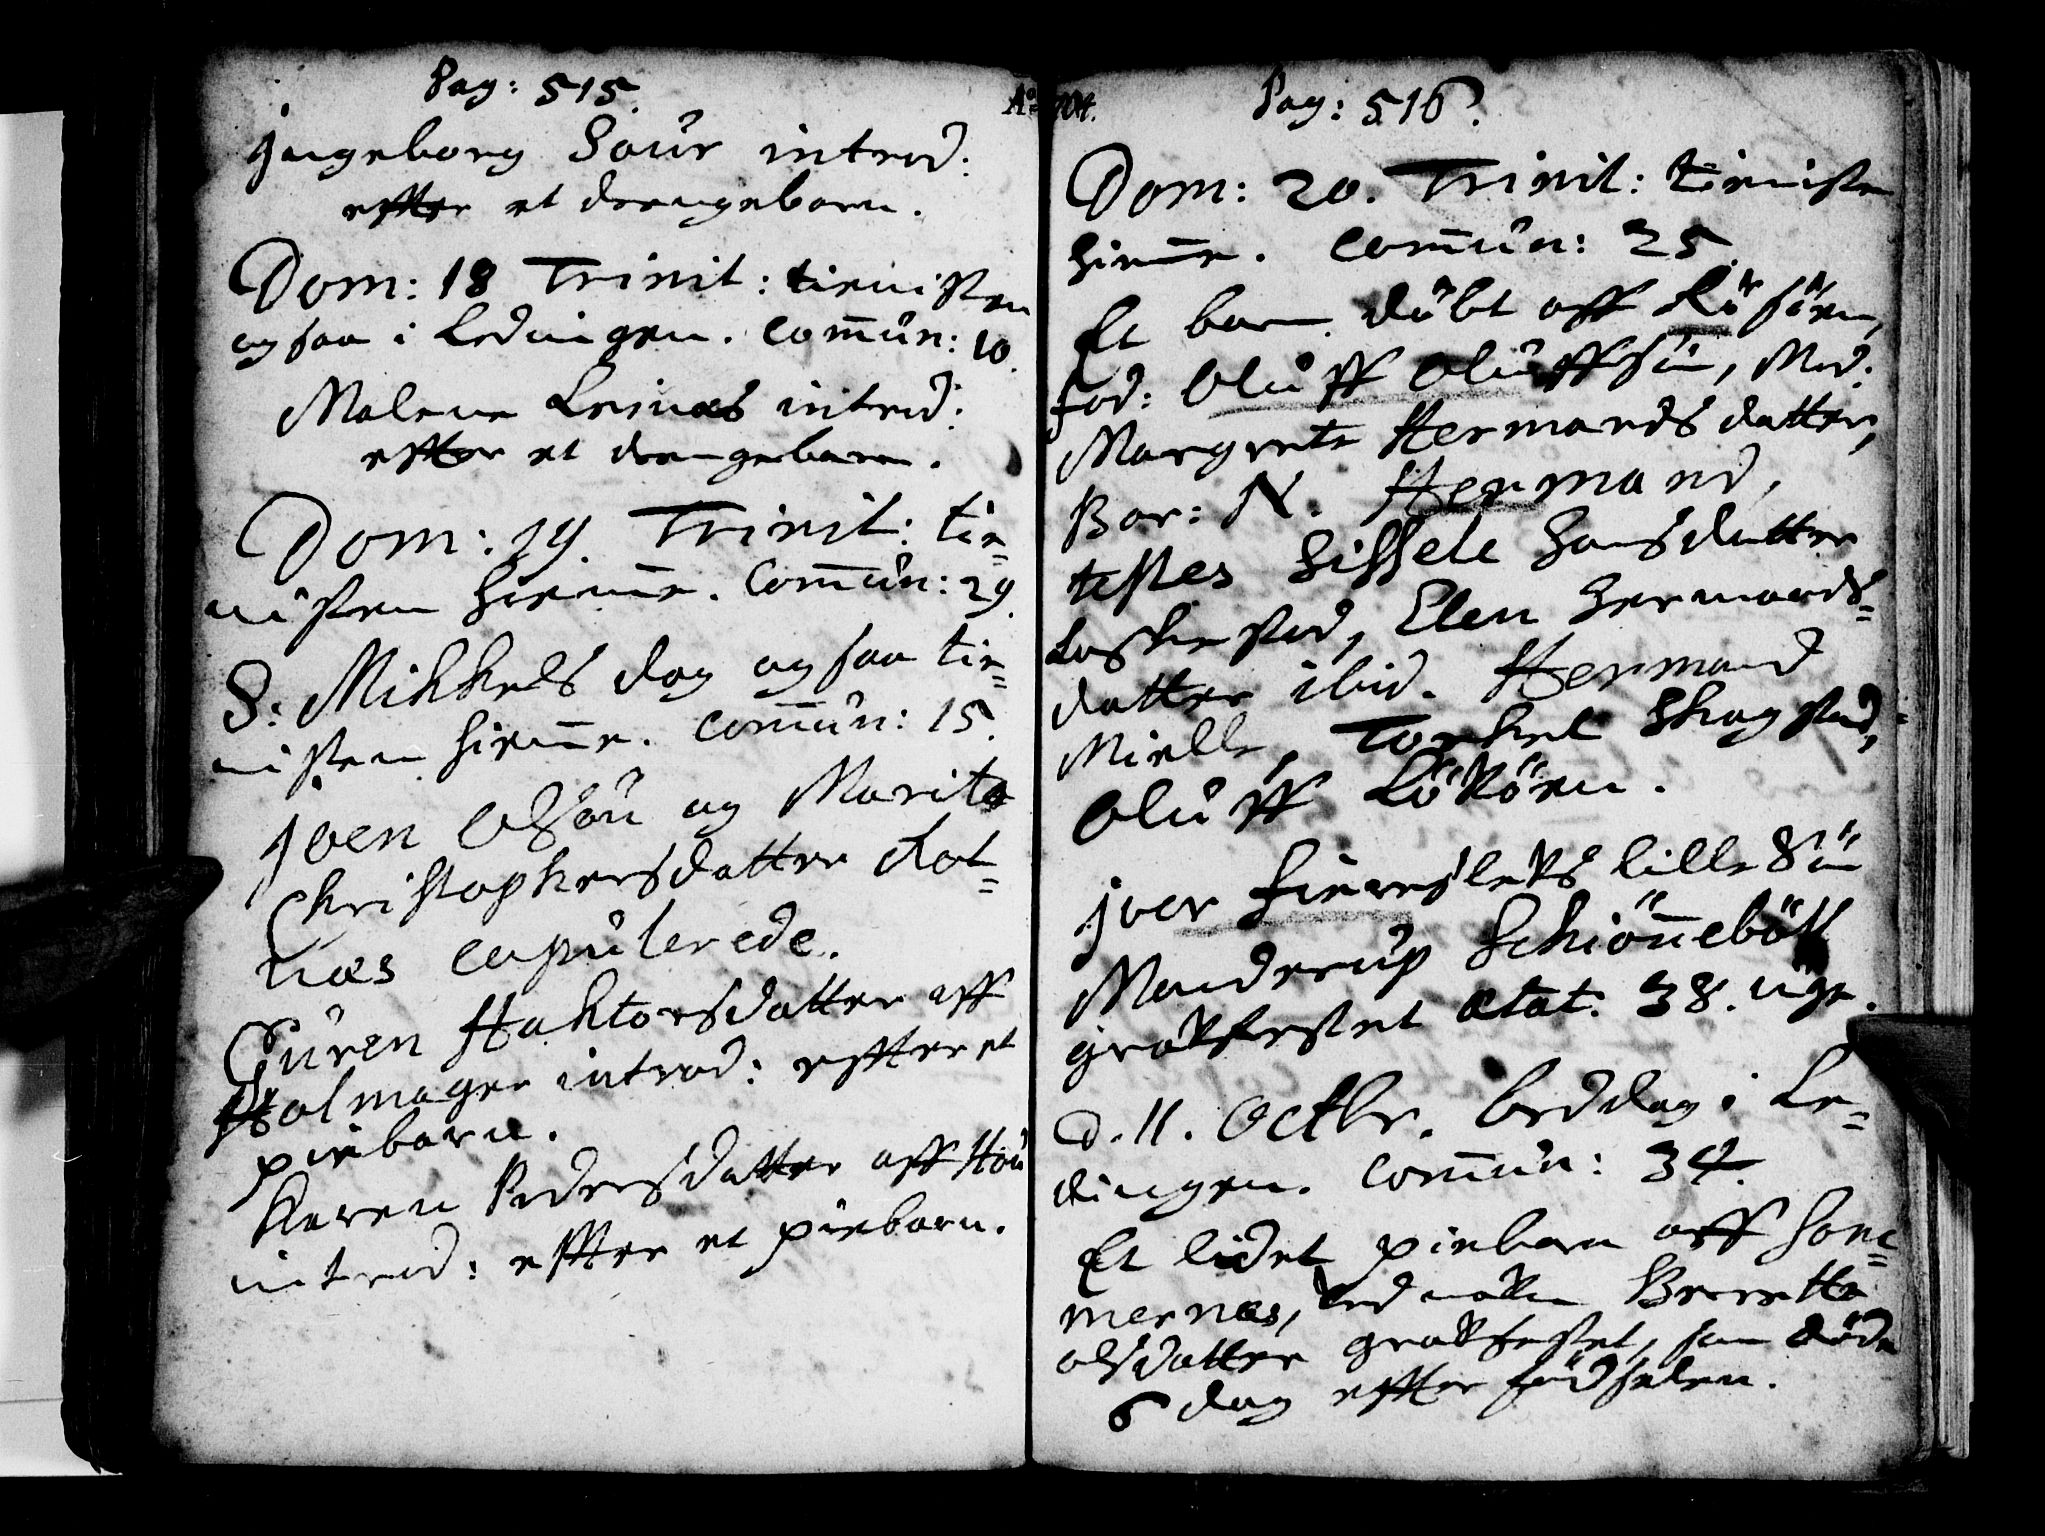 Pag: 515.
Ingeborg Saur introd:
effter et drengebarn.
Dom: 18 Trinit: tienisten
ogsaa i Lødingen. Comūn: 10.
Malene Leinæs introd:
effter et drengebarn.
Dom: 19. Trinit: tie=
nisten hieme. Comūn: 29.
S: Mikkels dag ogsaa tie=
nisten hieme. Comūn: 15.
Joen Olsøn og Marite
Christophersdatter Rot=
næs copulerede.
Guren Haktorsdatter aff
Holmager introd: effter et
piebarn.
Karen Pedersdatter aff Hou
introd: effter et piebarn.
Ao 1704.
Pag: 516.
Dom: 20. Trinit: tienisten
hieme. Comūn: 25.
Et barn døbt aff
fad: Oluff Oluffsøn, Mod:
Margrete Hermandsdatter,
Bar: N. Hermand,
testes Sissele Hansdatter
Elen Hermands=
datter ibid. Hermand
Mielle, Torkel Skagstad,
Oluff
Joer lille Søn
Manderup Schiønnebøll
grafffestet ætat: 38. uger.
d. 11. Octbr. beddag i Lø=
dingen. Comūn: 34.
Et lidet piebarn aff Som=
mernæs, ved nafn Beretthe
olsdatter graffestet, som døde
6 dag effter fødselen.